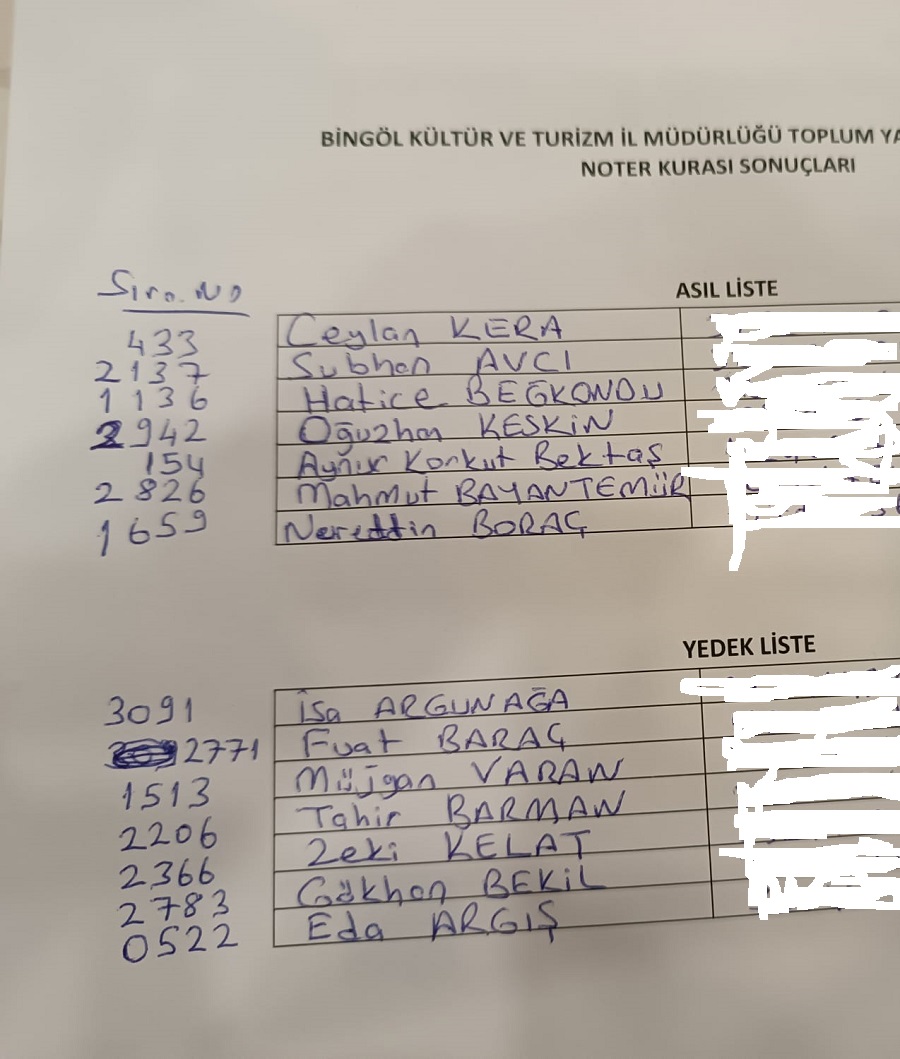 BİNGÖL KÜLTÜR VE TURİZM İL MÜDÜRLÜĞÜ TOPLUM YA
NOTER KURASI SONUÇLARI
Sıra. No
ASIL LİSTE
433 Ceylan KERA
2137 Subhan AVCI
1136 Hatice BEĞKONDU
2942 Oğuzhan KESKİN
154 Aynur Korkut Bektaş
2826 Mahmut BAYANTEMÜR
1659 Nereddin BORAÇ
YEDEK LİSTE
3091 İsa ARGUNAĞA
2771 Fuat BARAÇ
1513 Müjgan VARAN
2206 Tahir BARMAN
2366 Zeki KELAT
2783 Gökhan BEKİL
0522 Eda ARGIŞ